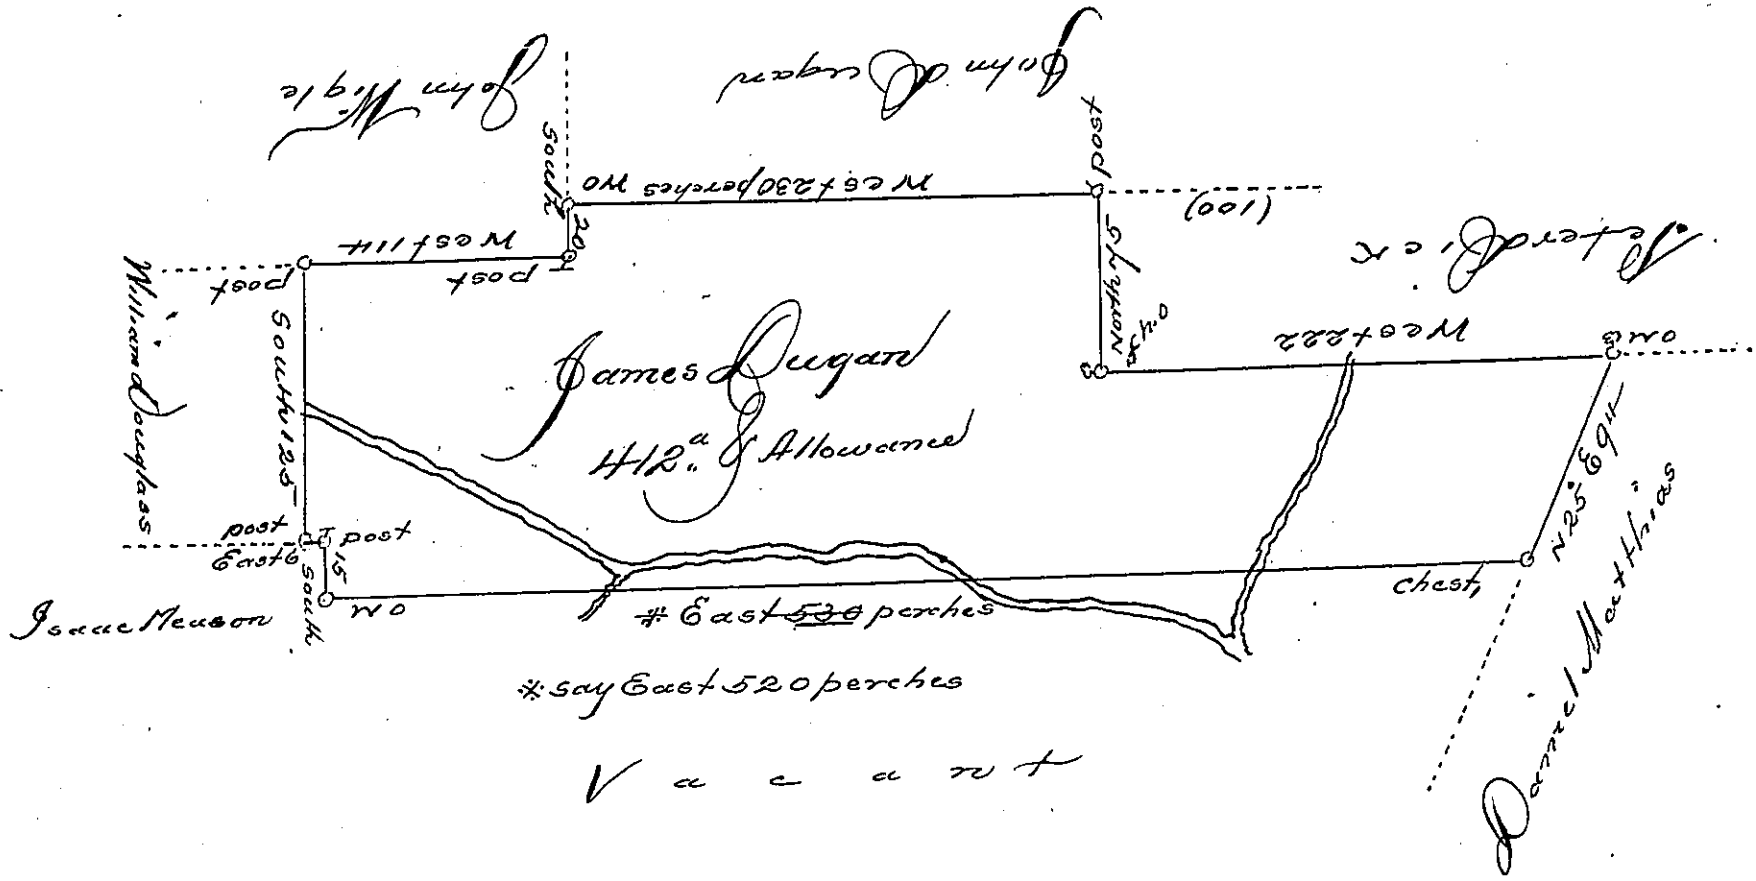 John Wigle
John Dugan
South
post
West 230 perches WO
(100)
20
West 114
post
post
William Douglass
South 125
North 75
Peter Dick
West 222
James Dugan
412 a & Allowance
N 25° E 94
Daniel Matthias
post
post
East 6
15
South
Isaac Meason
WO
chest,
# East 530 perches
# say East 520 perches
Vacant